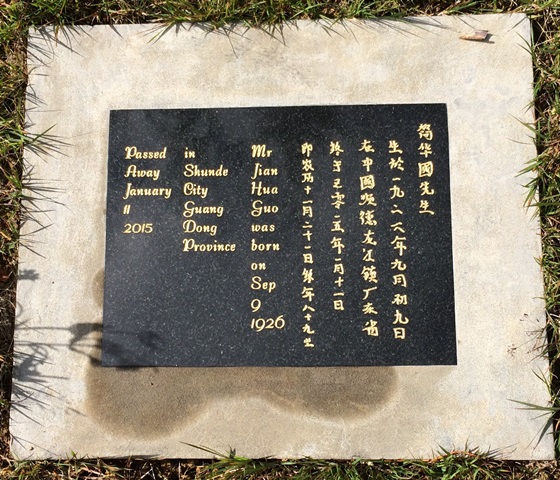 简华國先生
生於一九二六年九月初九日
在中國顺德龙江镇广东省
终于二零一五年一月十一日
即农历十一月二十一日终年八十九岁
Mr Jian Hua Guo was born on Sep 9 1926
in Shunde City Guang Dong Province
Passed Away January 11 2015